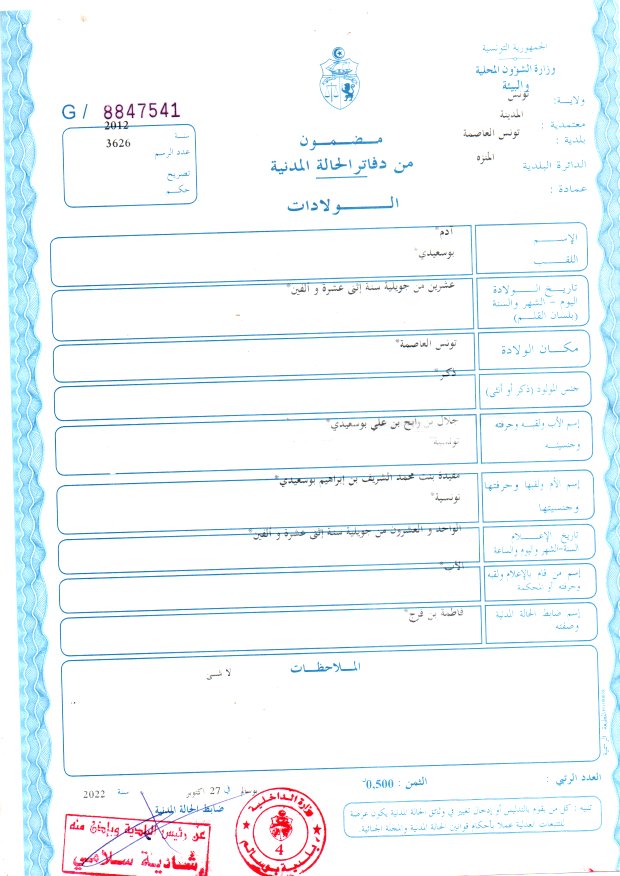 الجمهورية التونسية
وزارة الشؤون المحلية
والبيئة
ولاية: تونس
معتمدية: المدينة
بلدية: تونس العاصمة
الدائرة البلدية المنزه
عمادة:
G/ 8847541
سنة 2012
عدد الرسم 3626
تصريح
حكم
مضمون
من دفاتر الحالة المدنية
الولادات
الإسم آدم*
اللقب بوسعيدي*
تاريخ الولادة عشرين من جويلية سنة إثنى عشرة و ألفين*
اليوم - الشهر والسنة
(بلسان القلم)
مكان الولادة تونس العاصمة*
جنس المولود (ذكر أو أنثى) ذكر*
إسم الأب ولقبه وحرفته بن رابح بن علي بوسعيدي*
وجنسيته تونسية
إسم الأم ولقبها وحرفتها مفيدة بنت محمد الشريف بن إبراهيم بوسعيدي*
وجنسيتها تونسية*
تاريخ الإعلام الواحد و العشرون من جويلية سنة إثنى عشرة و ألفين*
السنة-الشهر واليوم والساعة
إسم من قام بالإعلام ولقبه الأب*
وحرفته أو المحكمة
إسم ضابط الحالة المدنية فاطمة بن فرج*
وصفته
الملاحظات
لا شى
العدد الرتبي:
الثمن: 0.500
بوسالم في 27 أكتوبر سنة 2022
ضابط الحالة المدنية
تنبيه: كل من يقوم بالتدليس أو إدخال تغيير في وثائق الحالة المدنية يكون عرضة
للتتبعات العدلية عملا بأحكام قوانين الحالة المدنية و المجلة الجنائية.
وزارة الداخلية
4
بلدية بوسالم
عن رئيس البلدية وبإذن منه
شادية سلامي